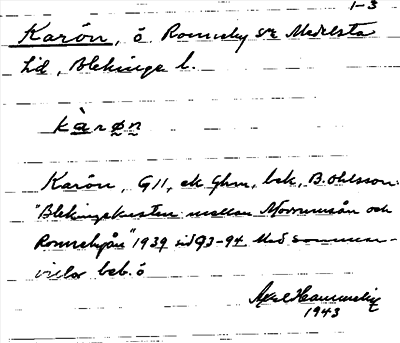 1-3
Karön, ö Ronneby sn Medelsta
hd, Blekinge l.
kàrǫn
Karön, G11, ek Ghm, beb, B. Ohlsson
"Blekingekusten mellan Mörrumsån och
Ronnebyån" 1939 sid 93-94. Med sommar-
villor beb. ö
Axel Hammelig
1943